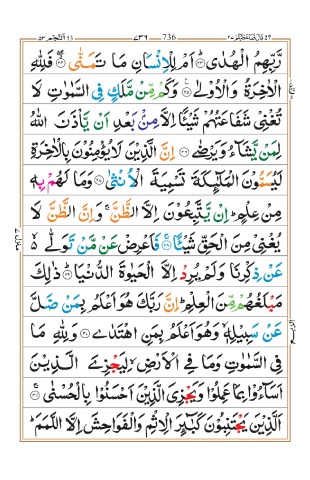 736
رَّبِّهِمُ الْهُدٰىؕ‏ ﴿۲۳﴾ اَمْ لِلْاِنْسَانِ مَا تَمَنّٰى ﴿۲۴﴾ فَلِلّٰهِ
الْاٰخِرَةُ وَالْاُوْلٰى ﴿۲۵﴾ وَكَمْ مِّنْ مَّلَكٍ فِى السَّمٰوٰتِ لَا
تُغْنِىْ شَفَاعَتُهُمْ شَيْئًا اِلَّا مِنْۢ بَعْدِ اَنْ يَّاْذَنَ اللّٰهُ
لِمَنْ يَّشَآءُ وَيَرْضٰى ﴿۲۶﴾ اِنَّ الَّذِيْنَ لَا يُؤْمِنُوْنَ بِالْاٰخِرَةِ
لَيُسَمُّوْنَ الْمَلٰٓئِكَةَ تَسْمِيَةَ الْاُنْثٰى ﴿۲۷﴾ وَمَا لَهُمْ بِهٖ
مِنْ عِلْمٍؕ اِنْ يَّتَّبِعُوْنَ اِلَّا الظَّنَّۚ وَاِنَّ الظَّنَّ لَا
يُغْنِىْ مِنَ الْحَقِّ شَيْئًاۚ ﴿۲۸﴾ فَاَعْرِضْ عَنْ مَّنْ تَوَلّٰى ۙ
عَنْ ذِكْرِنَا وَلَمْ يُرِدْ اِلَّا الْحَيٰوةَ الدُّنْيَاؕ ﴿۲۹﴾ ذٰلِكَ
مَبْلَغُهُمْ مِّنَ الْعِلْمِؕ اِنَّ رَبَّكَ هُوَ اَعْلَمُ بِمَنْ ضَلَّ
عَنْ سَبِيْلِهٖ وَهُوَ اَعْلَمُ بِمَنِ اهْتَدٰى ﴿۳۰﴾ وَلِلّٰهِ مَا
فِى السَّمٰوٰتِ وَمَا فِى الْاَرْضِۙ لِيَجْزِىَ الَّذِيْنَ
اَسَآءُوْا بِمَا عَمِلُوْا وَيَجْزِىَ الَّذِيْنَ اَحْسَنُوْا بِالْحُسْنٰىۚ ﴿۳۱﴾
الَّذِيْنَ يَجْتَنِبُوْنَ كَبٰٓئِرَ الْاِثْمِ وَالْفَوَاحِشَ اِلَّا اللَّمَمَؕ